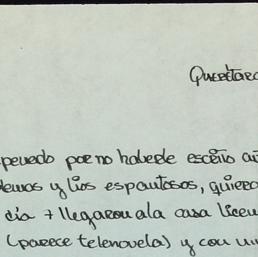 Querétaro
penedo por no haberle escrito
lemas y líos espantosos, quiero
día 7 llegaron a la casa licen
(parece telenovela) y con un